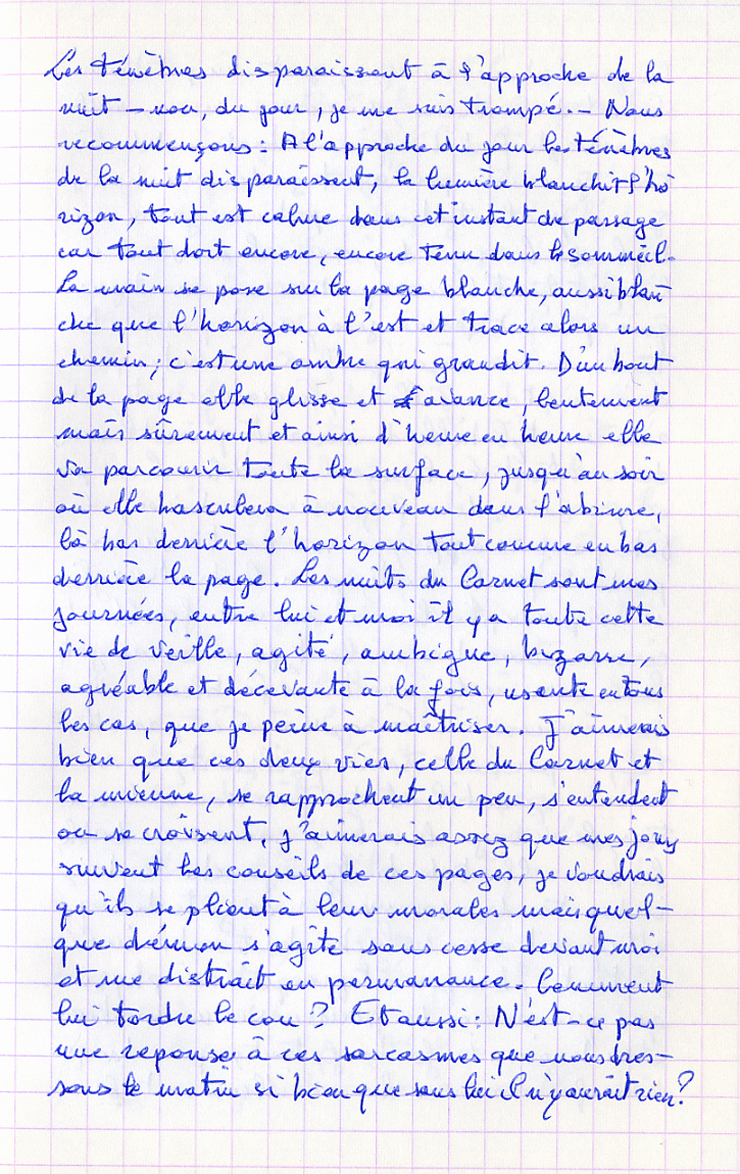 Les ténèbres disparaissent à l'approche de la
nuit – non, du jour, je me suis trompé. – Nous
recommençons : A l'approche du jour les ténèbres
de la nuit disparaissent, la lumière blanchit l'ho
rizon, tout est calme dans cet instant de passage
car tout dort encore, encore tenu dans le sommeil.
La main se pose sur la page blanche, aussi blan
che que l'horizon à l'est et trace alors un
chemin ; c'est une ombre qui grandit. D'un bout
de la page elle glisse et avance, lentement
mais sûrement et ainsi d'heure en heure elle
va parcourir toute la surface, jusqu'au soir
où elle basculera à nouveau dans l'abîme,
là bas derrière l'horizon tout comme en bas
derrière la page. Les nuits du Carnet sont mes
journées, entre lui et moi il y a toute cette
vie de veille, agité, ambigue, bizarre,
agréable et décevante à la fois, usante en tous
les cas, que je peine à maîtriser. J'aimerais
bien que ces deux vies, celle du Carnet et
la mienne, se rapprochent un peu, s'entendent
ou se croisent, j'aimerais assez que mes jours
suivent les conseils de ces pages, je voudrais
qu'ils se plient à leur morales mais quel-
que démon s'agite sans cesse devant moi
et me distrait en permanance. Comment
lui tordre le cou ? Et aussi : N'est-ce pas
une reponse à ces sarcasmes que nous dres-
sons le matin si bien que sans lui il n'y aurait rien ?